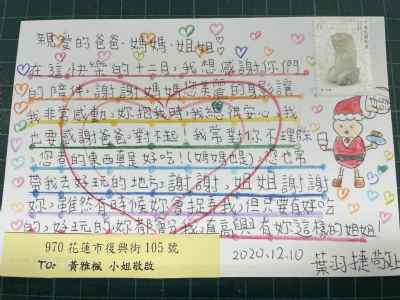 親愛的爸爸、媽媽、姐姐:
在這快樂的十二月,我想感謝你們
的陪伴,謝謝媽媽您美麗的身影讓
我非常感動,妳抱我時,我想很安心,我
也要感謝爸爸,對不起!我常對你不理睬
,您煮的東西真是好吃!(媽媽也是),您也常
帶我去好玩的地方,謝謝,姐姐謝謝
妳,雖然有時候妳會捉弄我,但只要有好吃
的、好玩的,妳都會分我,真高興有妳這樣的姐姐!
970 花蓮市復興街 105 號
TO: 黃雅楓 小姐敬啟
2020.12.10
葉羽捷